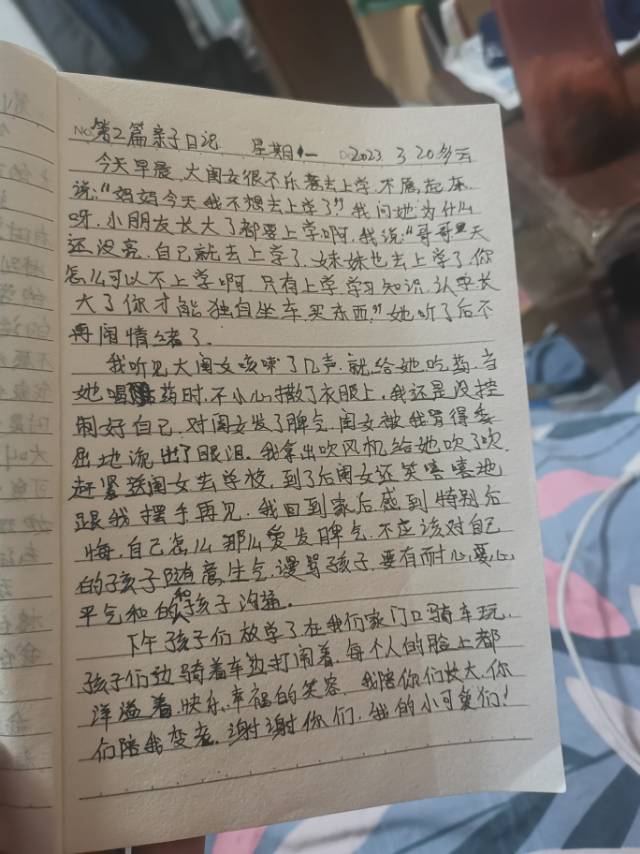 No 第2篇亲子日记 星期一 2023 3 20多云
今天早晨,大闺女很不乐意去上学,不愿起床
说:"妈妈今天我不想去上学了"我问她为什么
呀,小朋友长大了都要上学啊,我说:"哥哥天
还没亮,自己就去上学了,妹妹也去上学了你
怎么可以不上学啊,只有上学学习知识,认字长
大了你才能独自坐车,买东西,"她听了后不
再闹情绪了。
我听见大闺女咳嗽了几声,就给她吃药,当
她喝药时,不小心撒了衣服上,我还是没控
制好自己,对闺女发了脾气,闺女被我骂得委
屈地流出了眼泪。我拿出吹风机给她吹了吹,
赶紧送闺女去学校,到了后闺女还笑嘻嘻地
跟我摆手再见,我回到家后感到特别后
悔,自己怎么那么爱发脾气,不应该对自己
的孩子随意生气,谩骂孩子,要有耐心,爱心,
平气和的和孩子沟通。
下午孩子们放学了在我们家门口骑车玩,
孩子们边骑着车边打闹着,每个人的脸上都
洋溢着,快乐、幸福的笑容,我陪你们长大,你
们陪我变老,谢谢你们,我的小可爱们!